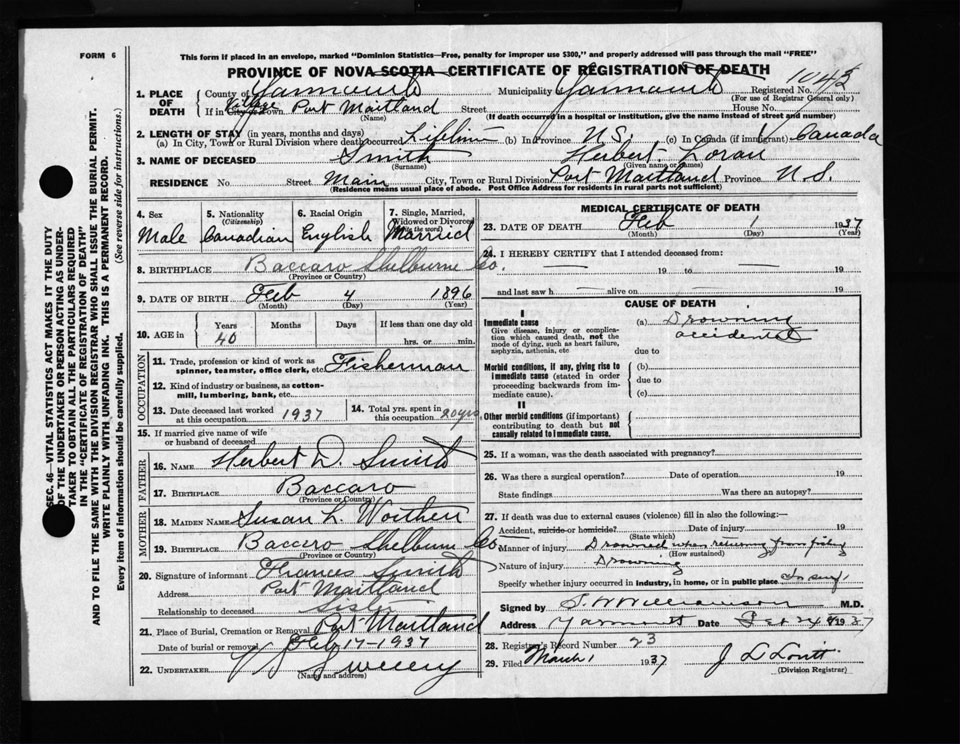 FORM 6
This form if placed in an envelope, marked "Dominion Statistics—Free, penalty for improper use $300," and properly addressed will pass through the mail "FREE"
PROVINCE OF NOVA SCOTIA—CERTIFICATE OF REGISTRATION OF DEATH
1043
1. PLACE OF DEATH
County of Yarmouth Municipality Yarmouth Registered No.
(For use of Registrar General only)
If in City or Town Village Port Maitland Street House No.
(Name) (If death occurred in a hospital or institution, give the name instead of street and number)
2. LENGTH OF STAY (in years, months and days)
(a) In City, Town or Rural Division where death occurred Lifetime (b) In Province N.S. (c) In Canada (if immigrant) Canada
3. NAME OF DECEASED Smith Herbert Loran
(Surname) (Given name or names)
RESIDENCE No Street Main City, Town or Rural Division Port Maitland Province N.S.
(Residence means usual place of abode. Post Office Address for residents in rural parts not sufficient)
4. Sex
Male
5. Nationality
(Citizenship)
Canadian
6. Racial Origin
English
7. Single, Married,
Widowed or Divorced
(Write the word)
Married
8. BIRTHPLACE Baccaro Shelburne Co.
(Province or Country)
9. DATE OF BIRTH Feb 4 1896
(Month) (Day) (Year)
10. AGE in
Years Months Days If less than one day old
40 hrs. or min.
OCCUPATION
11. Trade, profession or kind of work as
spinner, teamster, office clerk, etc. Fisherman
12. Kind of industry or business, as cotton-
mill, lumbering, bank, etc.
13. Date deceased last worked
at this occupation 1937
14. Total yrs. spent in
this occupation 20 yrs.
15. If married give name of wife
or husband of deceased
FATHER
16. NAME Herbert D. Smith
17. BIRTHPLACE Baccaro
(Province or Country)
MOTHER
18. MAIDEN NAME Susan L. Worthen
19. BIRTHPLACE Baccaro Shelburne Co
(Province or Country)
20. Signature of informant Frances Smith
Address Port Maitland
Relationship to deceased Sister
21. Place of Burial, Cremation or Removal Port Maitland
Date of burial or removal Feb 17-1937
22. UNDERTAKER Sweeny
(Name and address)
MEDICAL CERTIFICATE OF DEATH
23. DATE OF DEATH Feb 1 1937
(Month) (Day) (Year)
24. I HEREBY CERTIFY that I attended deceased from:
19 to 19
and last saw h alive on 19
CAUSE OF DEATH
I
Immediate cause
Give disease, injury or complica-
tion which caused death, not the
mode of dying, such as heart failure,
asphyxia, asthenia, etc
(a) Drowning
accidental
due to
Morbid conditions, if any, giving rise to
immediate cause (stated in order
proceeding backwards from im-
mediate cause).
(b)
due to
(c)
II
Other morbid conditions (if important)
contributing to death but not
causally related to immediate cause.
25. If a woman, was the death associated with pregnancy?
26. Was there a surgical operation? Date of operation 19
State findings Was there an autopsy?
27. If death was due to external causes (violence) fill in also the following:—
Accident, suicide or homicide? Date of injury 19
(State which)
Manner of injury Drowned when returning from fishing
(How sustained)
Nature of injury Drowning
Specify whether injury occurred in industry, in home, or in public place In surf
Signed by Williamson M.D.
Address Yarmouth Date Feb 24 1937
28. Registrar's Record Number 23
29. Filed March 1 1937 J L Lovitt
(Division Registrar)
SEC. 46—VITAL STATISTICS ACT MAKES IT THE DUTY
OF THE UNDERTAKER OR PERSON ACTING AS UNDER-
TAKER TO OBTAIN ALL THE PARTICULARS REQUIRED
IN THE "CERTIFICATE OF REGISTRATION OF DEATH"
AND TO FILE THE SAME WITH THE DIVISION REGISTRAR WHO SHALL ISSUE THE BURIAL PERMIT.
WRITE PLAINLY WITH UNFADING INK. THIS IS A PERMANENT RECORD.
Every item of information should be carefully supplied. (See reverse side for instructions.)